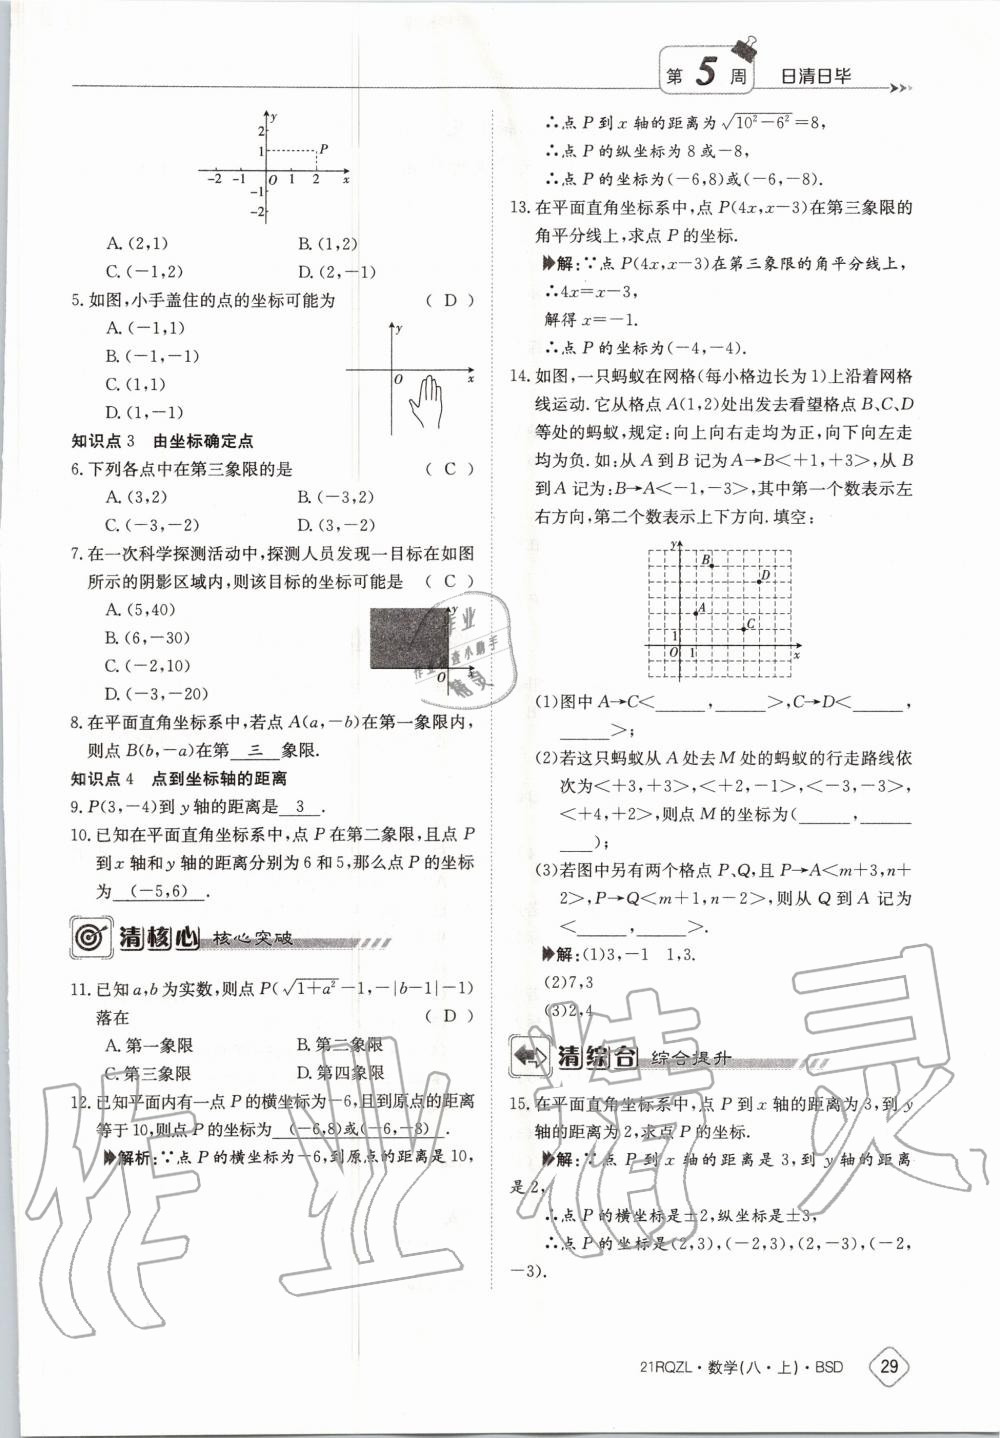 第5周 日清日毕
y
2
1
P
-2 -1 O 1 2 x
-1
-2
A.(2,1) B.(1,2)
C.(-1,2) D.(2,-1)
5.如图,小手盖住的点的坐标可能为 ( D )
A.(-1,1)
B.(-1,-1)
C.(1,1)
D.(1,-1)
y
O x
知识点3 由坐标确定点
6.下列各点中在第三象限的是 ( C )
A.(3,2) B.(-3,2)
C.(-3,-2) D.(3,-2)
7.在一次科学探测活动中,探测人员发现一目标在如图
所示的阴影区域内,则该目标的坐标可能是 ( C )
A.(5,40)
B.(6,-30)
C.(-2,10)
D.(-3,-20)
y
O x
8.在平面直角坐标系中,若点A(a,-b)在第一象限内,
则点B(b,-a)在第 三 象限.
知识点4 点到坐标轴的距离
9.P(3,-4)到y轴的距离是 3 .
10.已知在平面直角坐标系中,点P在第二象限,且点P
到x轴和y轴的距离分别为6和5,那么点P的坐标
为 (-5,6) .
清核心 核心突破
11.已知a,b为实数,则点P(√1+a²-1,-|b-1|-1)
落在 ( D )
A.第一象限 B.第二象限
C.第三象限 D.第四象限
12.已知平面内有一点P的横坐标为-6,且到原点的距离
等于10,则点P的坐标为 (-6,8)或(-6,-8) .
解析:∵点P的横坐标为-6,到原点的距离是10,
∴点P到x轴的距离为√10²-6²=8,
∴点P的纵坐标为8或-8,
∴点P的坐标为(-6,8)或(-6,-8).
13.在平面直角坐标系中,点P(4x,x-3)在第三象限的
角平分线上,求点P的坐标.
解:∵点P(4x,x-3)在第三象限的角平分线上,
∴4x=x-3,
解得x=-1.
∴点P的坐标为(-4,-4).
14.如图,一只蚂蚁在网格(每小格边长为1)上沿着网格
线运动.它从格点A(1,2)处出发去看望格点B、C、D
等处的蚂蚁,规定:向上向右走均为正,向下向左走
均为负.如:从A到B记为A→B<+1,+3>,从B
到A记为:B→A<-1,-3>,其中第一个数表示左
右方向,第二个数表示上下方向.填空:
y
B
D
A
C
1
O 1 x
(1)图中A→C<______,______>,C→D<______,
______>;
(2)若这只蚂蚁从A处去M处的蚂蚁的行走路线依
次为<+3,+3>,<+2,-1>,<-3,-3>,
<+4,+2>,则点M的坐标为(______,______
____);
(3)若图中另有两个格点P、Q,且P→A<m+3,n+
2>,P→Q<m+1,n-2>,则从Q到A记为
<______,______>.
解:(1)3,-1 1,3.
(2)7,3
(3)2,4
清综合 综合提升
15.在平面直角坐标系中,点P到x轴的距离为3,到y
轴的距离为2,求点P的坐标.
解:∵点P到x轴的距离是3,到y轴的距离
是2,
∴点P的横坐标是±2,纵坐标是±3,
∴点P的坐标是(2,3),(-2,3),(2,-3),(-2,
-3).
作业精灵
21RQZL·数学(八·上)·BSD 29